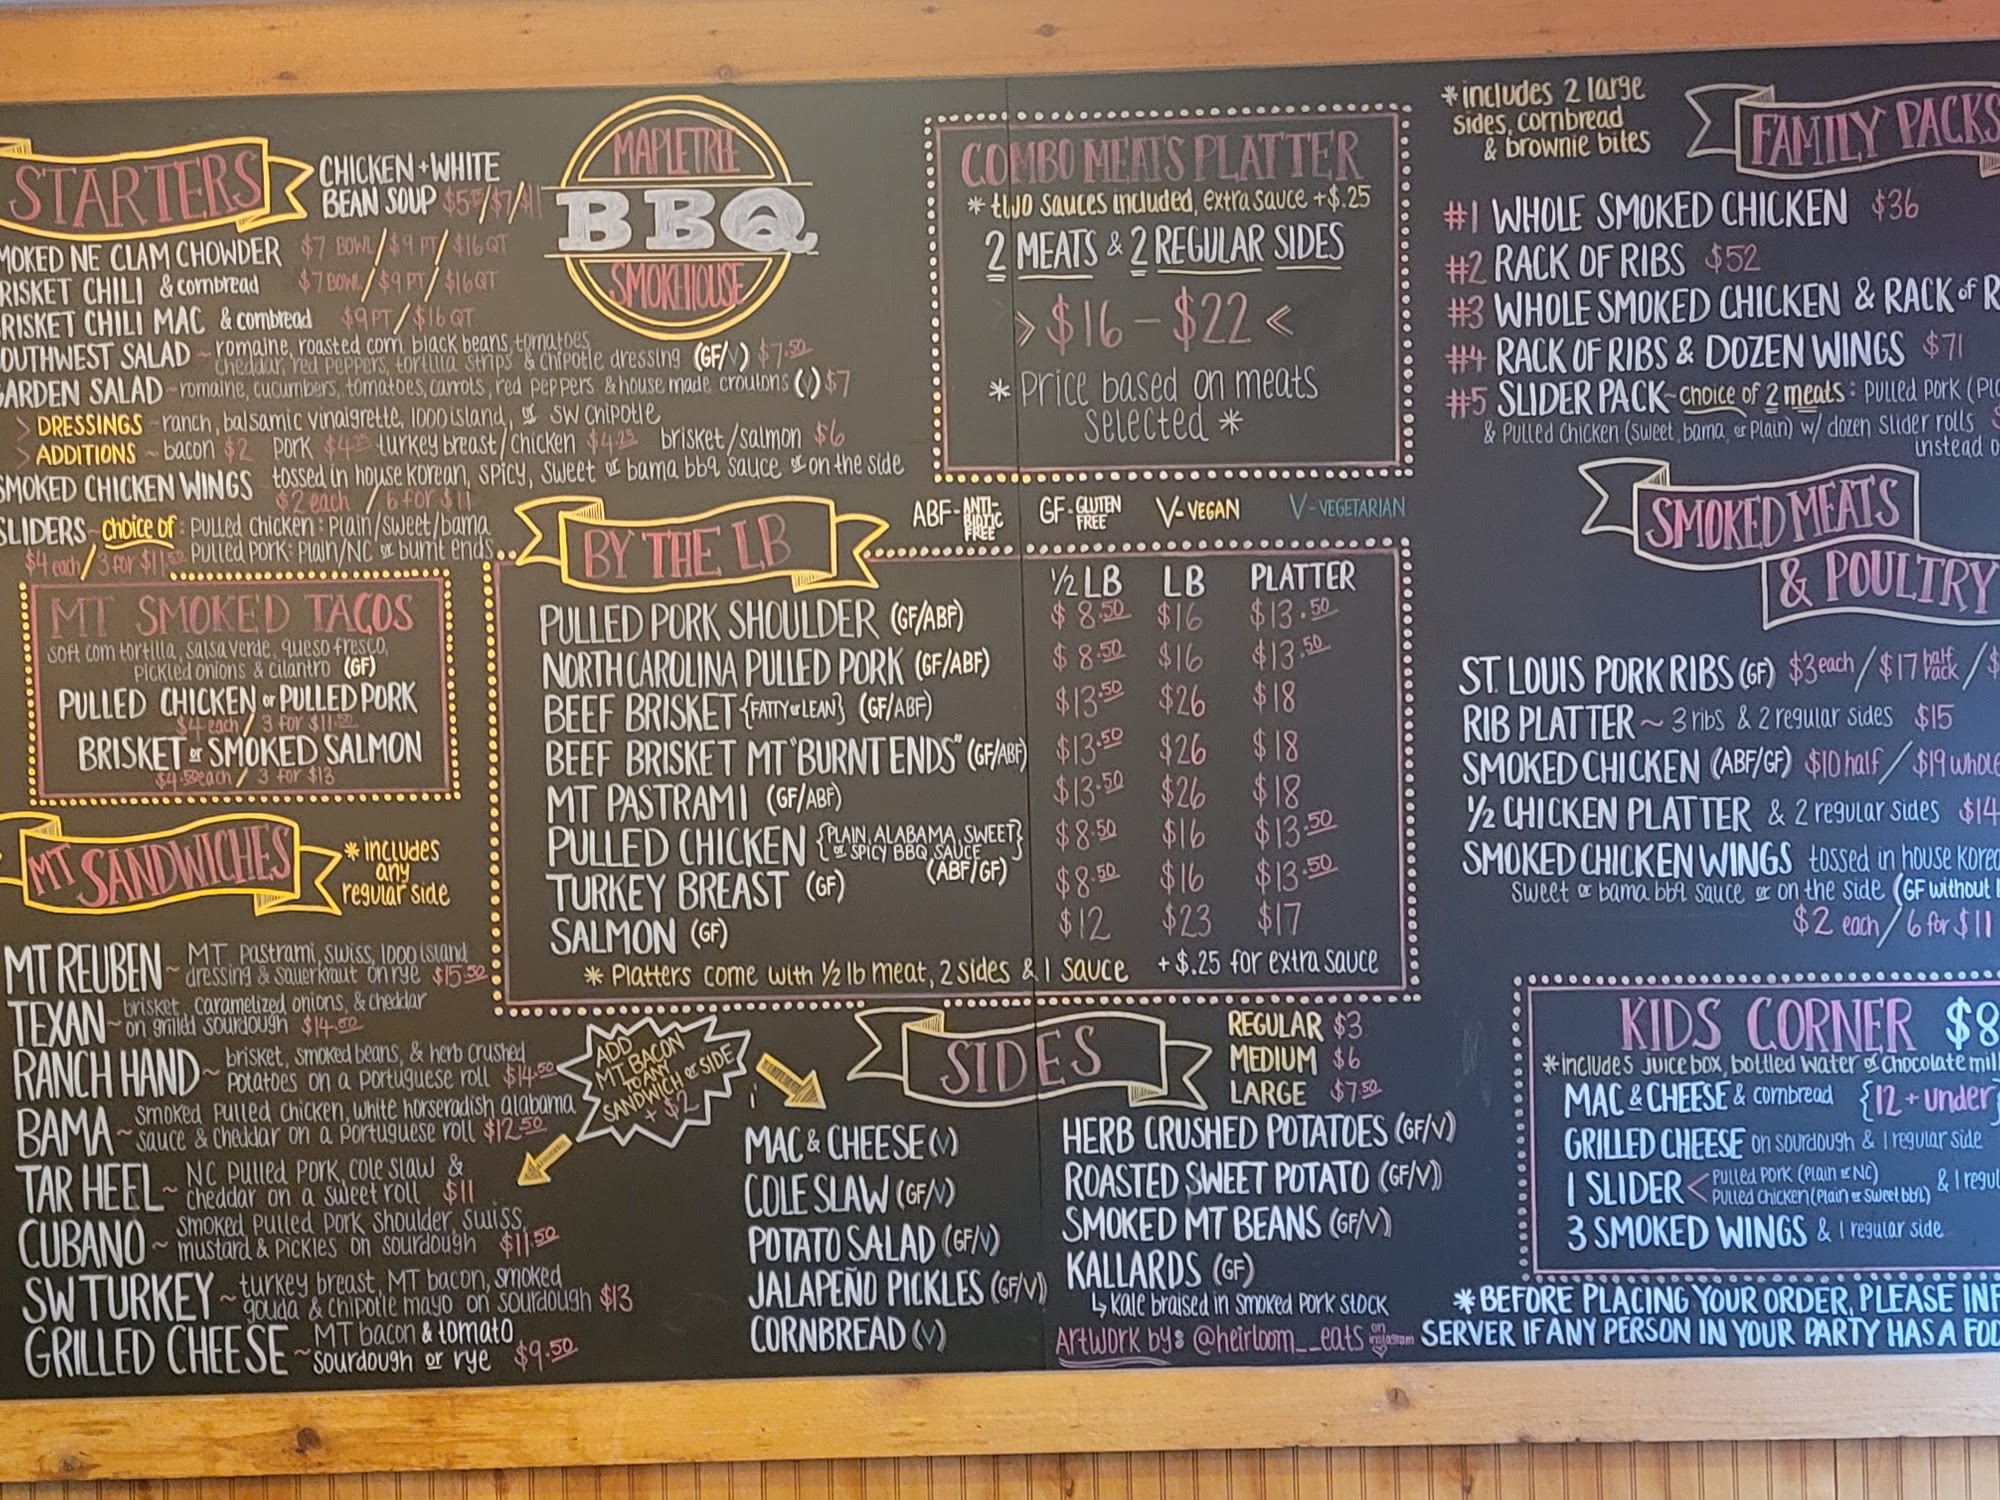 STARTERS
CHICKEN + WHITE
BEAN SOUP
MOKED NE CLAM CHOWDER $7 BOWL / $9 PT / $16 QT
RISKET CHILI & cornbread $7 BOWL / $9 PT / $16 QT
RISKET CHILI MAC & cornbread $9 PT / $16 QT
OUTHWEST SALAD ~ romaine, roasted corn, black beans, tomatoes
cheddar, red peppers, tortilla strips & chipotle dressing (GF/V) $7.50
ARDEN SALAD ~ romaine, cucumbers, tomatoes, carrots, red peppers & house made croutons (V) $7
> DRESSINGS ~ ranch, balsamic vinaigrette, 1000 island, or SW Chipotle
> ADDITIONS ~ bacon $2 pork $4.25 turkey breast/chicken $4.25 brisket/salmon $6
SMOKED CHICKEN WINGS tossed in house korean, spicy, sweet or bama bbq sauce or on the side
$2 each / 6 for $11
SLIDERS ~ choice of: Pulled chicken: Plain/sweet/bama
Pulled Pork: Plain/NC or burnt ends
$4 each / 3 for $11.50
MAPLETREE
BBQ
SMOKEHOUSE
MT SMOKE'D TACOS
soft corn tortilla, salsa verde, queso fresco,
pickled onions & cilantro (GF)
PULLED CHICKEN or PULLED PORK
$4 each / 3 for $11.50
BRISKET or SMOKED SALMON
$4.50 each / 3 for $13
MT SANDWICHE'S
* includes
any
regular side
MT REUBEN ~ MT Pastrami, swiss, 1000 island
dressing & sauerkraut on rye $15.50
TEXAN ~ brisket, caramelized onions, & cheddar
on grilled sourdough $14.50
RANCH HAND ~ brisket, smoked beans, & herb crushed
potatoes on a Portuguese roll $14.50
BAMA ~ smoked pulled chicken, white horseradish alabama
sauce & cheddar on a Portuguese roll $12.50
TAR HEEL ~ NC pulled pork, cole slaw &
cheddar on a sweet roll $11
CUBANO ~ smoked pulled pork shoulder, swiss,
mustard & pickles on sourdough $11.50
SW TURKEY ~ turkey breast, MT bacon, smoked
gouda & chipotle mayo on sourdough $13
GRILLED CHEESE ~ MT bacon & tomato
sourdough or rye $9.50
ADD
MT BACON
TO ANY
SANDWICH or SIDE
+ $2
COMBO MEATS PLATTER
* two sauces included, extra sauce +$.25
2 MEATS & 2 REGULAR SIDES
> $16 - $22 <
* Price based on meats
selected *
ABF - ANTI-BIOTIC FREE GF - GLUTEN FREE V - VEGAN V - VEGETARIAN
BY THE LB
1/2 LB LB PLATTER
PULLED PORK SHOULDER (GF/ABF) $8.50 $16 $13.50
NORTH CAROLINA PULLED PORK (GF/ABF) $8.50 $16 $13.50
BEEF BRISKET {FATTY or LEAN} (GF/ABF) $13.50 $26 $18
BEEF BRISKET MT "BURNT ENDS" (GF/ABF) $13.50 $26 $18
MT PASTRAMI (GF/ABF) $13.50 $26 $18
PULLED CHICKEN {PLAIN, ALABAMA, SWEET or SPICY BBQ SAUCE} (ABF/GF) $8.50 $16 $13.50
TURKEY BREAST (GF) $8.50 $16 $13.50
SALMON (GF) $12 $23 $17
* Platters come with 1/2 lb meat, 2 sides & 1 sauce + $.25 for extra sauce
SIDES
REGULAR $3
MEDIUM $6
LARGE $7.50
MAC & CHEESE (V)
COLE SLAW (GF/V)
POTATO SALAD (GF/V)
JALAPEÑO PICKLES (GF/V)
CORNBREAD (V)
HERB CRUSHED POTATOES (GF/V)
ROASTED SWEET POTATO (GF/V)
SMOKED MT BEANS (GF/V)
KALLARDS (GF)
↳ Kale braised in smoked pork stock
Artwork by: @heirloom__eats on instagram
* includes 2 large
sides, cornbread
& brownie bites
FAMILY PACKS
#1 WHOLE SMOKED CHICKEN $36
#2 RACK OF RIBS $52
#3 WHOLE SMOKED CHICKEN & RACK of R
#4 RACK OF RIBS & DOZEN WINGS $71
#5 SLIDER PACK ~ choice of 2 meats: Pulled Pork (Pl
& Pulled Chicken (sweet, bama, or Plain) w/ dozen slider rolls
instead o
SMOKED MEATS
& POULTRY
ST. LOUIS PORK RIBS (GF) $3 each / $17 half rack / $
RIB PLATTER ~ 3 ribs & 2 regular sides $15
SMOKED CHICKEN (ABF/GF) $10 half / $19 whole
1/2 CHICKEN PLATTER & 2 regular sides $14
SMOKED CHICKEN WINGS tossed in house Korea
sweet or bama bbq sauce or on the side (GF without
$2 each / 6 for $11
KIDS CORNER $8
* includes juice box, bottled water or chocolate mil
MAC & CHEESE & cornbread {12 + under}
GRILLED CHEESE on sourdough & 1 regular side
1 SLIDER < Pulled Pork (Plain or NC)
Pulled chicken (Plain or sweet bbq) & 1 regul
3 SMOKED WINGS & 1 regular side
* BEFORE PLACING YOUR ORDER, PLEASE INF
SERVER IF ANY PERSON IN YOUR PARTY HAS A FOO